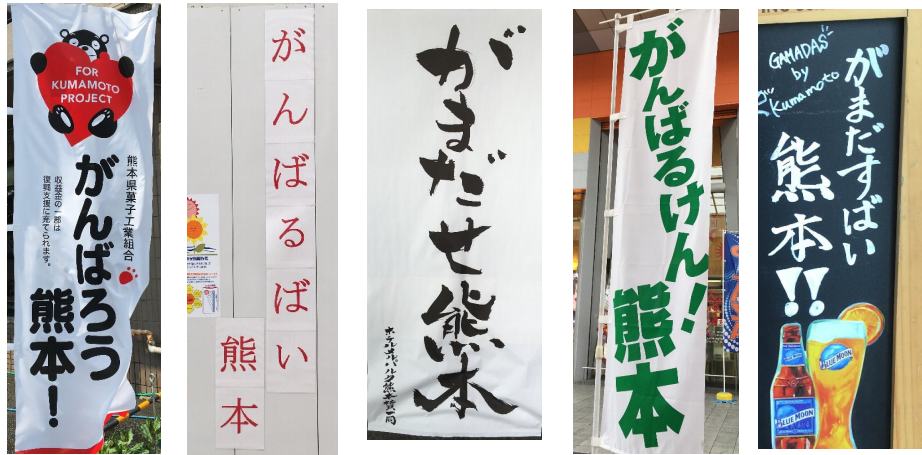 FOR
KUMAMOTO
PROJECT
熊本県菓子工業組合
がんばろう
熊本！
収益金の一部は
復興支援に充てられます。
がんばるばい
熊本
がまだせ熊本
がんばるけん！
熊本
GAMADAS
by
Kumamoto
がまだすばい
熊本!!
BLUE MOON
BLUE MOON